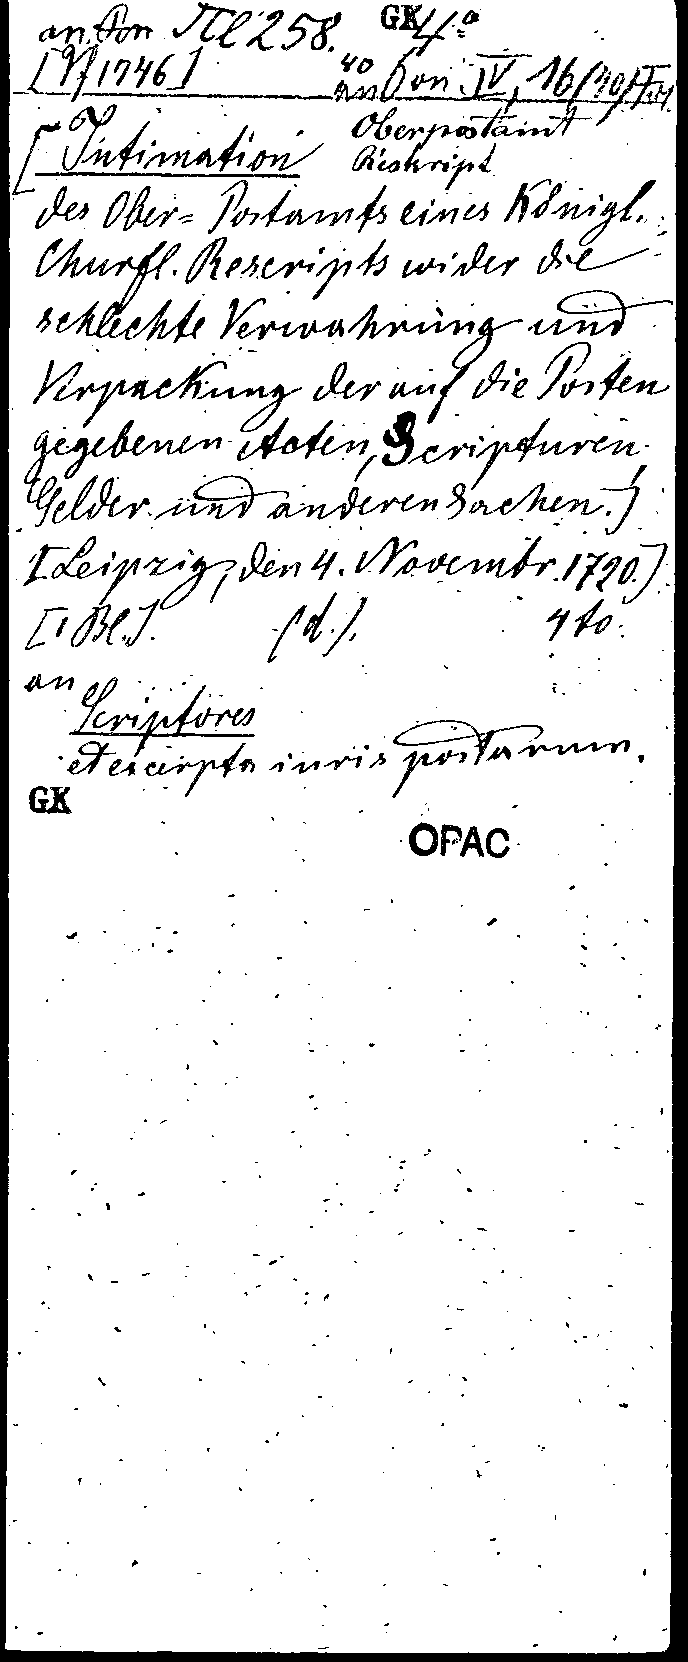 an Bon 258. GK 4°
[N 1746]
40 an Bon. IV, 16
Oberpostamt
[Intimation Reskript
des Ober= Postamts eines Königl.
Churfl. Rescripts wider die
schlechte Verwahrung und
Verpackung der auf die Posten
gegebenen Acten, Scripturen,
Gelder und anderen Sachen.]
[Leipzig, den 4. Novembr. 1720.]
[1 Bl.]. (d.). 4to.
an
Scriptores
et excerpta iuris postarum.
GK
OPAC